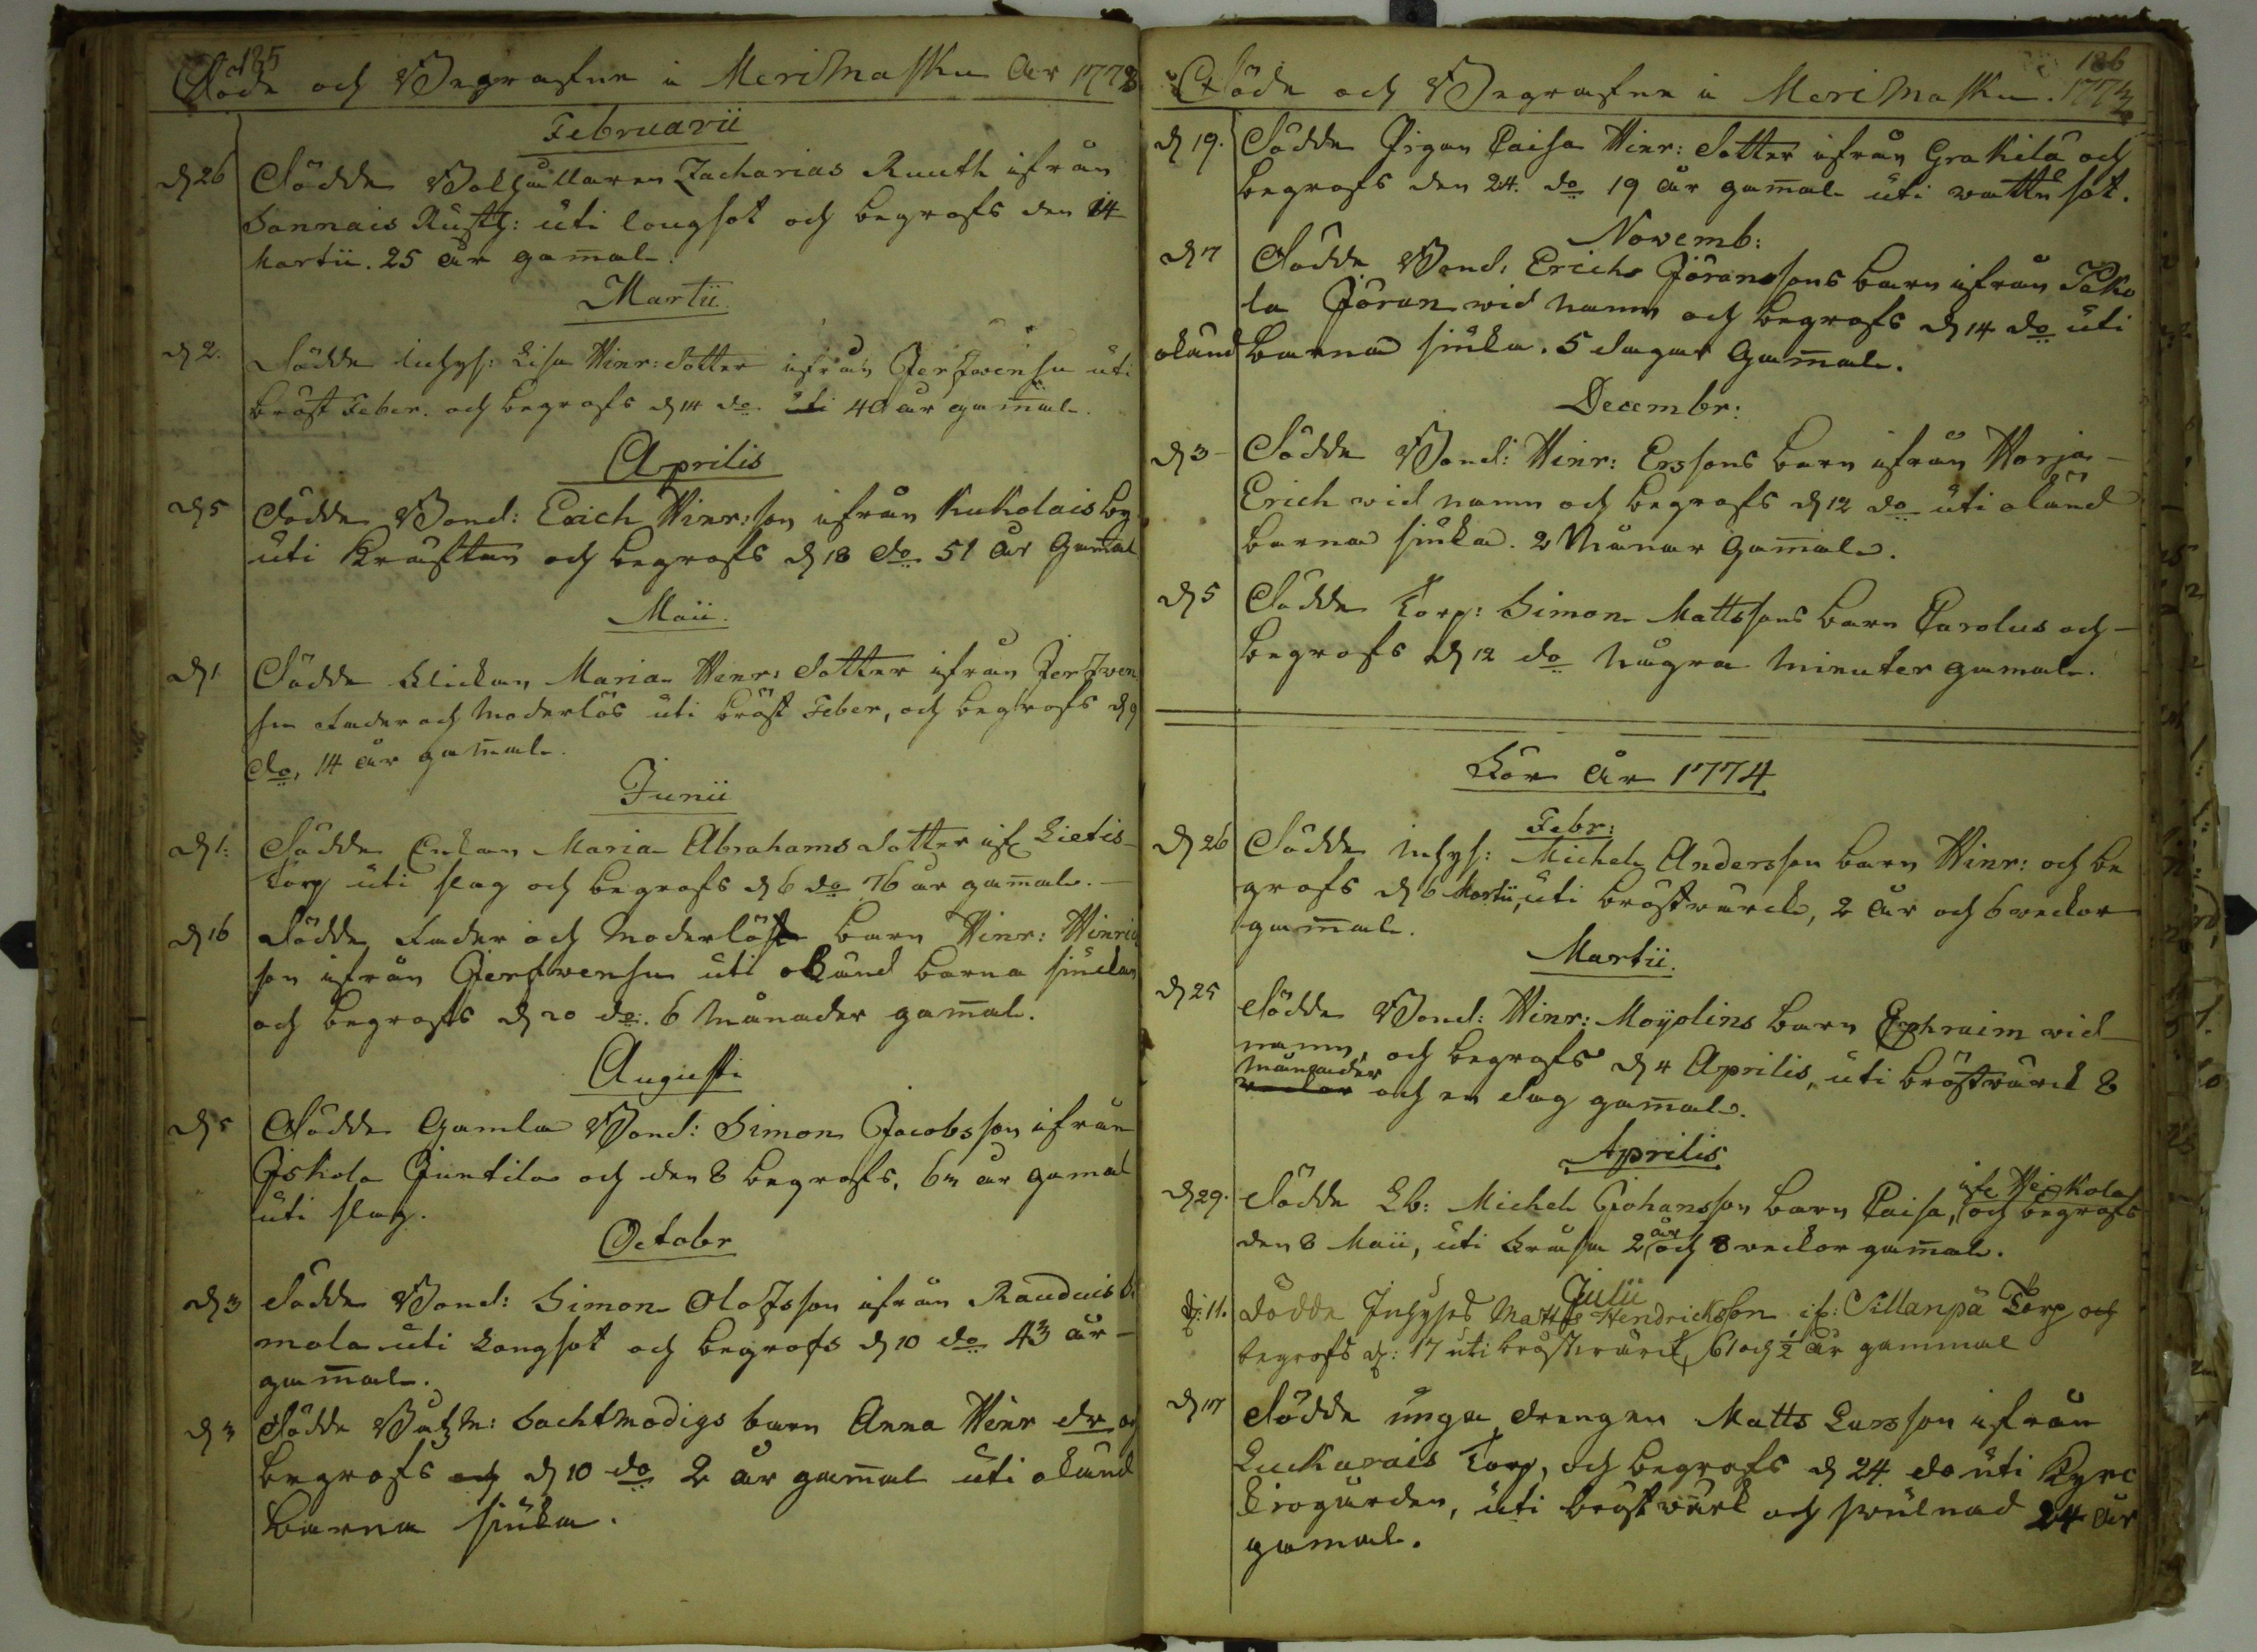 185
Döde och Begrafne i MeriMasku år 1773
Februarii
d 26 Dödde Bokhållaren Zacharias Ruuth ifrån
Sannais Rusth: uti longsot och begrofs den 14
Martii. 25 år gamal.
Martii
d 2. Dödde Inhys: Lisa Hinr: dotter ifrån Jerfwensu uti
bröst Feber. och begrofs d 14 do 40 år gamal.
Aprilis
d 5 Dödde Bond: Erich Hinr:son ifrån Kukolais by
uti Kräftan och begrofs d 18 do 51 år Gamal
Maii.
d 1 Dödde flickan Maria Hinr: dotter ifrån Jerfwen
su fader och moderlös uti bröst Feber, och begrofs d 9
do, 14 år gamal.
Junii
d 1. Dödde Enkan Maria Abrahams dotter if Lietis
Torp uti slag och begrofs d 6 do 76 år gamal.
d 16 Dödde fader och moderlöst barn Hinr: Hinric
son ifrån Jerfwensu uti okänd barna siukan
och begrofs d 20 do. 6 månader gamal.
Augusti
d 5 Dödde Gamla Bond: Simon Jacobsson ifrån
Iskola Juntila och den 8 begrofs, år gamal
uti slag.
Octobr
d 3 Dödde Bond: Simon Olofsson ifrån Raudais
mola uti Longsot och begrofs d 10 do 43 år
gamal.
d 3 Dödde Båtzm: Sachtmodigs barn Anna Hinr dr och
begrofs och d 10 do 2 år gamal uti okänd
barna siuka.
186
Döde och Begrafne i MeriMasku. 1773
d 19. Dödde Pigan Caisa Hinr: dotter ifrån Grakila och
begrofs den 24. do 19 år gamal uti wattu sot.
Novemb:
d 7 Dödde Bond: Erichs Jöranssons barn ifrån Isko
la Jöran wid namn och begrofs d 14 do uti
okänd barna siuka. 5 dagar Gamal.
Decembr:
d 3 Dödde Bond: Hinr: Erssons barn ifrån Horja
Erich wid namn och begrofs d 12 do uti okänd
barna siuka. 2 Månar Gamal.
d 5 Dödde Torp: Simon Mattssons barn Carolus och
begrofs d 12 do några minuter gamal.
För år 1774
Febr:
d 26 Dödde Inhys: Michel Andersson barn Hinr: och be
grofs d 6 Martii, uti bröstwärck, 2 år och 6 weckor
gamal.
Martii.
d 25 Dödde Bond: Hinr: Moijolins barn Ephraim wid
namn, och begrofs d 4 Aprilis, uti bröstwärck 8
månader
weckor och en dag gamal.
Aprilis
if Heikola
d 29. Dödde Lb: Michel Johansson barn Caisa, och begrofs
den 8 Maii, uti 2 år och 8 weckor gamal.
Julii
d: 11. Dödde Inhyses Matts Hendricksson if: Sillanpä Torp och
begrofs d: 17 uti bröstwärck, 61 och 1/2 år gammal
d 17 Dödde unga drengen Matts Larsson ifrån
Luckarais Torp, och begrofs d 24 do uti Kyrc
kiogården, uti bröstwärk och swulnad 24 år
gamal.